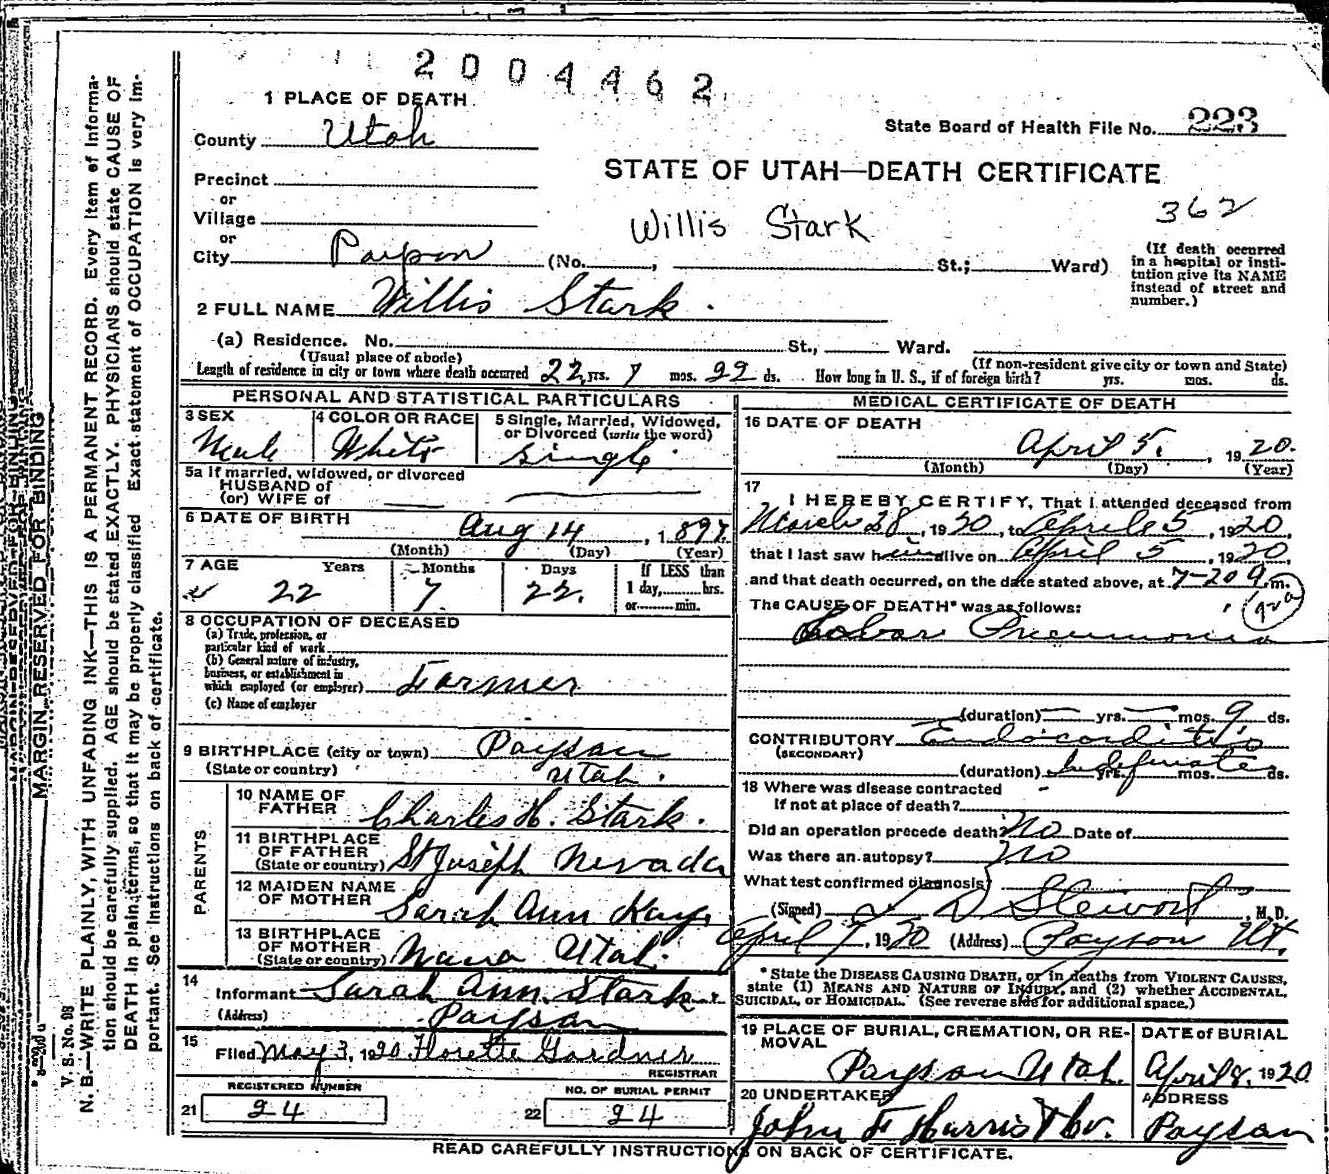 2004462
1 PLACE OF DEATH
County Utah
State Board of Health File No. 223
STATE OF UTAH—DEATH CERTIFICATE
Precinct
or
Village
or
City Payson (No. , St.; Ward)
Willis Stark
362
(If death occurred
in a hospital or insti-
tution give its NAME
instead of street and
number.)
2 FULL NAME Willis Stark.
(a) Residence. No. St., Ward.
(Usual place of abode) (If non-resident give city or town and State)
Length of residence in city or town where death occurred 22 yrs. 7 mos. 22 ds. How long in U. S., if of foreign birth? yrs. mos. ds.
PERSONAL AND STATISTICAL PARTICULARS
3 SEX
Male
4 COLOR OR RACE
White
5 Single, Married, Widowed,
or Divorced (write the word)
Single
5a If married, widowed, or divorced
HUSBAND of
(or) WIFE of
6 DATE OF BIRTH
Aug 14, 1897.
(Month) (Day) (Year)
7 AGE Years Months Days If LESS than
22 7 22. 1 day,........hrs.
or........min.
8 OCCUPATION OF DECEASED
(a) Trade, profession, or
particular kind of work
(b) General nature of industry,
business, or establishment in
which employed (or employer) Farmer
(c) Name of employer
9 BIRTHPLACE (city or town) Payson
(State or country) Utah.
PARENTS
10 NAME OF
FATHER Charles H. Stark.
11 BIRTHPLACE
OF FATHER
(State or country) St Joseph Nevada
12 MAIDEN NAME
OF MOTHER Sarah Ann
13 BIRTHPLACE
OF MOTHER
(State or country) Utah.
14
Informant Sarah Ann Stark.
(Address) Payson
15
Filed May 3, 1920 Florette Gardner
REGISTRAR
REGISTERED NUMBER
21 24
NO. OF BURIAL PERMIT
22 24
MEDICAL CERTIFICATE OF DEATH
16 DATE OF DEATH
April 5, 1920.
(Month) (Day) (Year)
17
I HEREBY CERTIFY, That I attended deceased from
March 28, 1920, to April 5, 1920,
that I last saw him alive on April 5, 1920,
and that death occurred, on the date stated above, at 7-20 m.
The CAUSE OF DEATH* was as follows:
Lobar Pneumonia
(duration) — yrs. — mos. 9 ds.
CONTRIBUTORY Endocarditis
(SECONDARY)
(duration) Indefinite yrs. mos. ds.
18 Where was disease contracted
if not at place of death?
Did an operation precede death? No Date of
Was there an autopsy? No
What test confirmed diagnosis?
(Signed) L D Stewart, M. D.
April 7, 1920 (Address) Payson Ut.
* State the DISEASE CAUSING DEATH, or in deaths from VIOLENT CAUSES,
state (1) MEANS AND NATURE OF INJURY, and (2) whether ACCIDENTAL,
SUICIDAL, or HOMICIDAL. (See reverse side for additional space.)
19 PLACE OF BURIAL, CREMATION, OR RE-
MOVAL
Payson Utah.
DATE of BURIAL
April 8, 1920
20 UNDERTAKER
John F Harris & Co.
ADDRESS
Payson
READ CAREFULLY INSTRUCTIONS ON BACK OF CERTIFICATE.
MARGIN RESERVED FOR BINDING
V. S. No. 98
N. B.—WRITE PLAINLY, WITH UNFADING INK—THIS IS A PERMANENT RECORD. Every item of informa-
tion should be carefully supplied. AGE should be stated EXACTLY. PHYSICIANS should state CAUSE OF
DEATH in plain terms, so that it may be properly classified Exact statement of OCCUPATION is very im-
portant. See instructions on back of certificate.